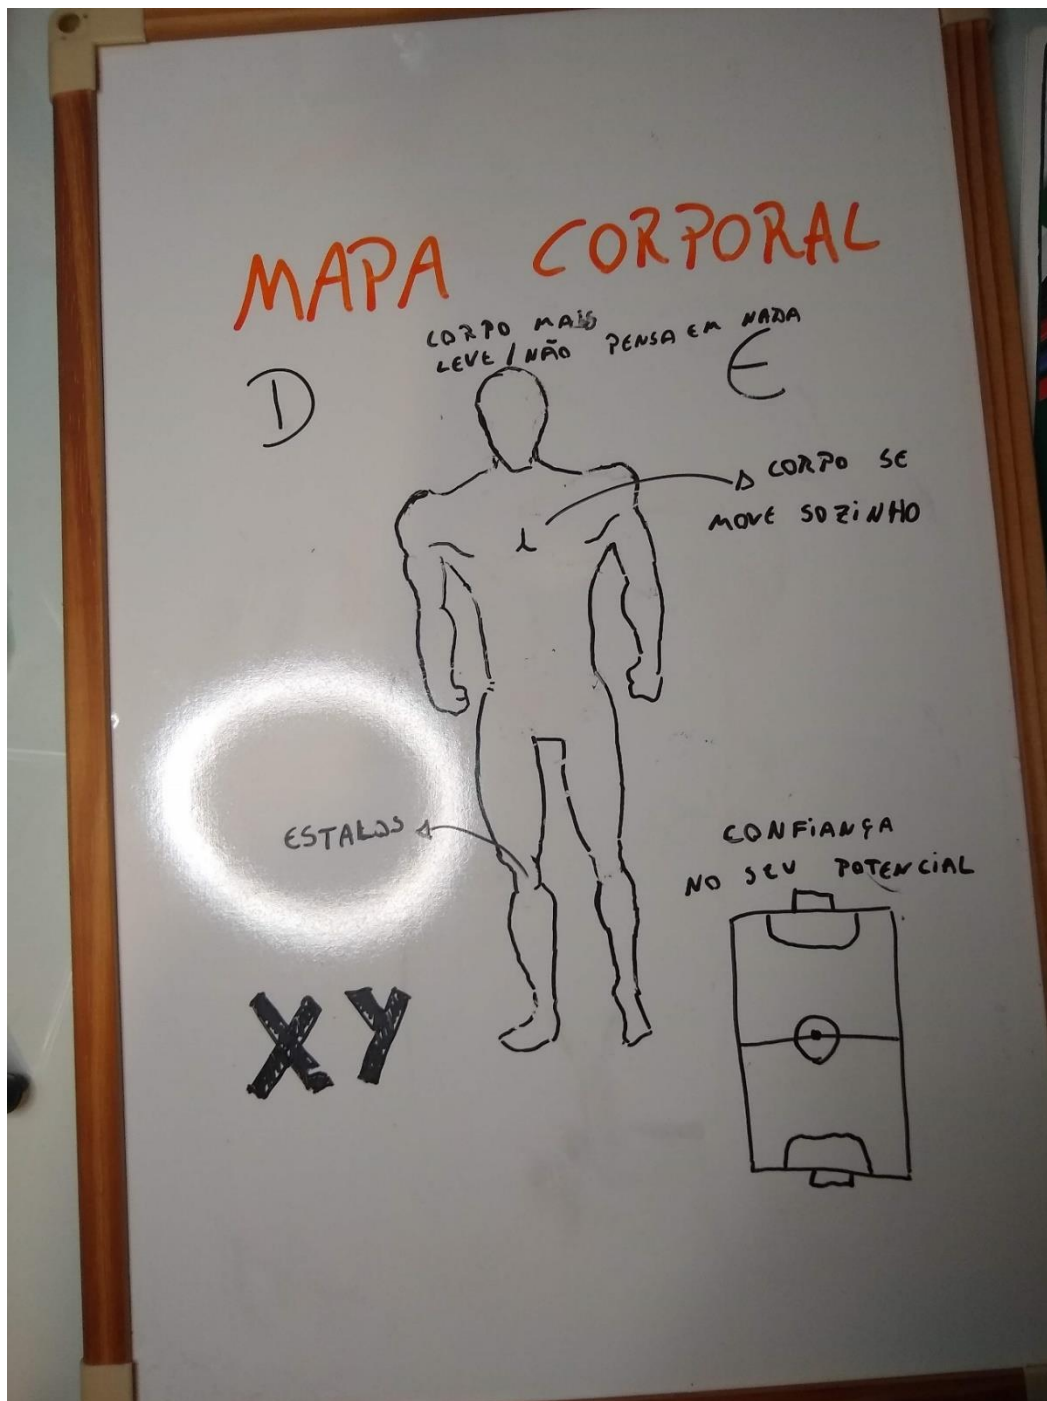 MAPA CORPORAL
CORPO MAIS
LEVE / NÃO PENSA EM NADA
D
E
CORPO SE
MOVE SOZINHO
ESTALOS
CONFIANÇA
NO SEU POTENCIAL
XY